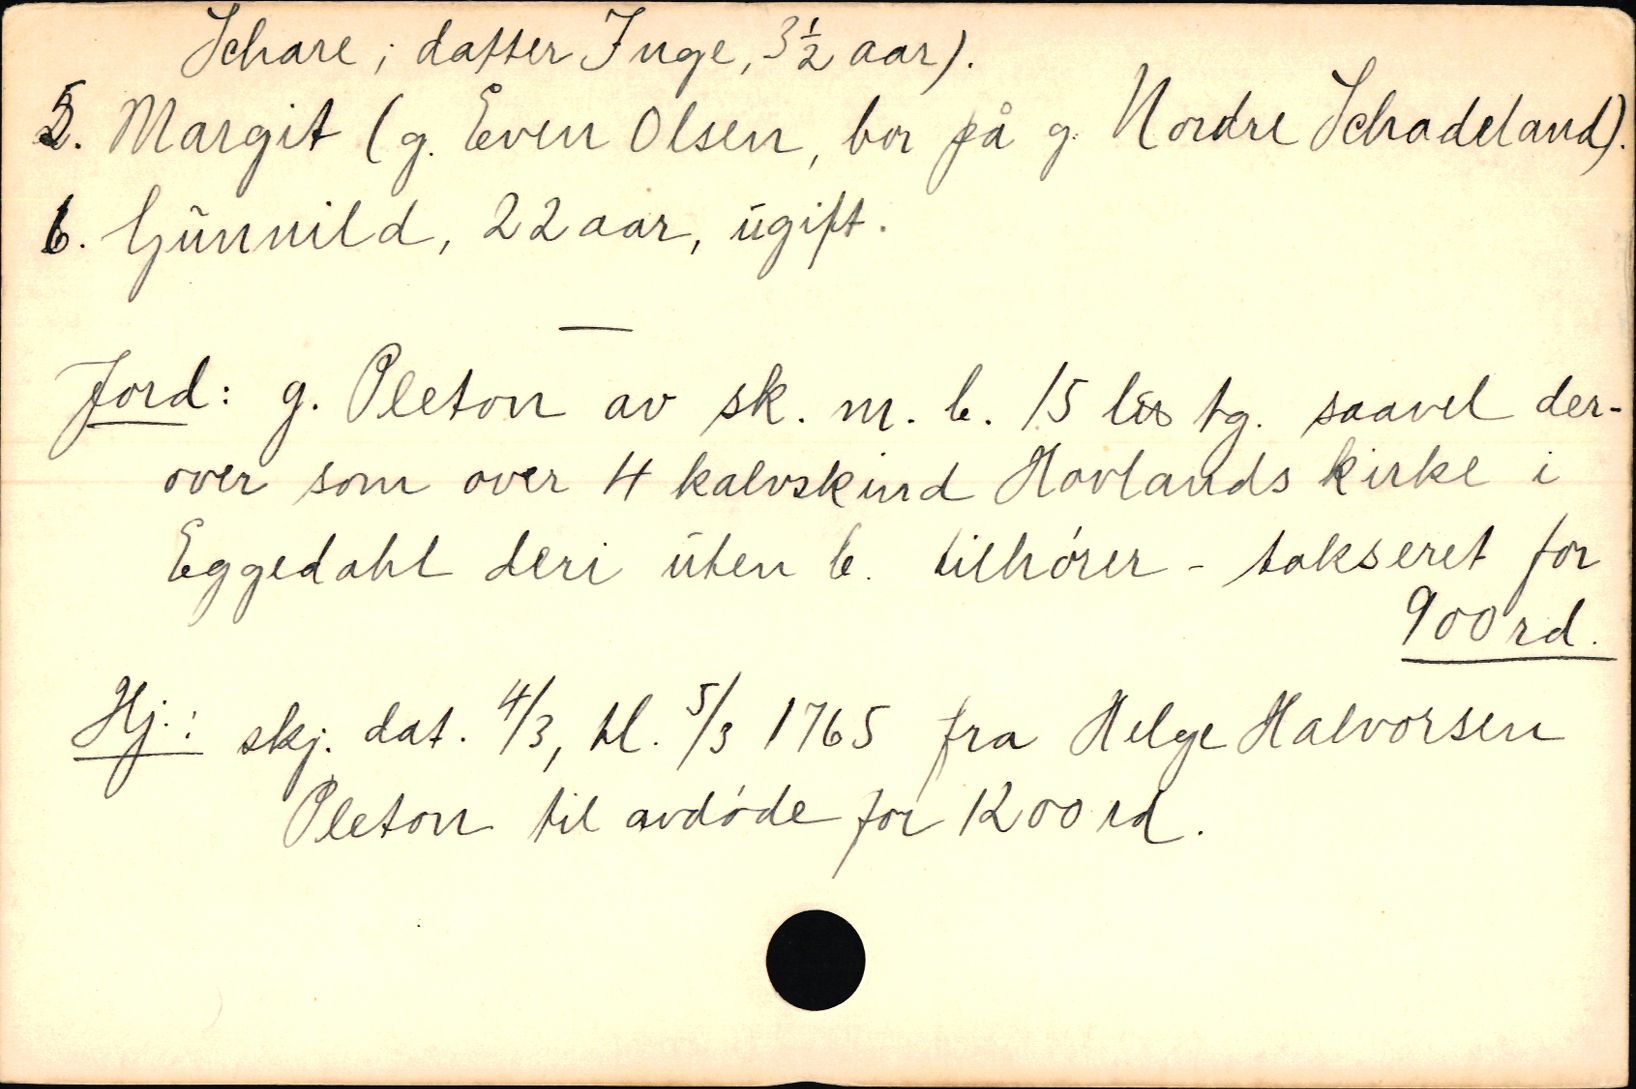 Schare; datter Inge, 3½ aar).
5. Margit (g. Even Olsen, bor på g. Nordre Schadeland).
6. Gunnild, 22 aar, ugift.
—
Jord: g. Pleton av sk. m. b. 15 lis tg. saavel der-
over som over 4 kalvskind Hovlands kirke i
Eggedahl deri uten b. tilhører - takseret for
900 rd.
Hj.: skj. dat. 4/3, tl. 5/3 1765 fra Helge Halvorsen
Pleton til avdøde for 1200 rd.